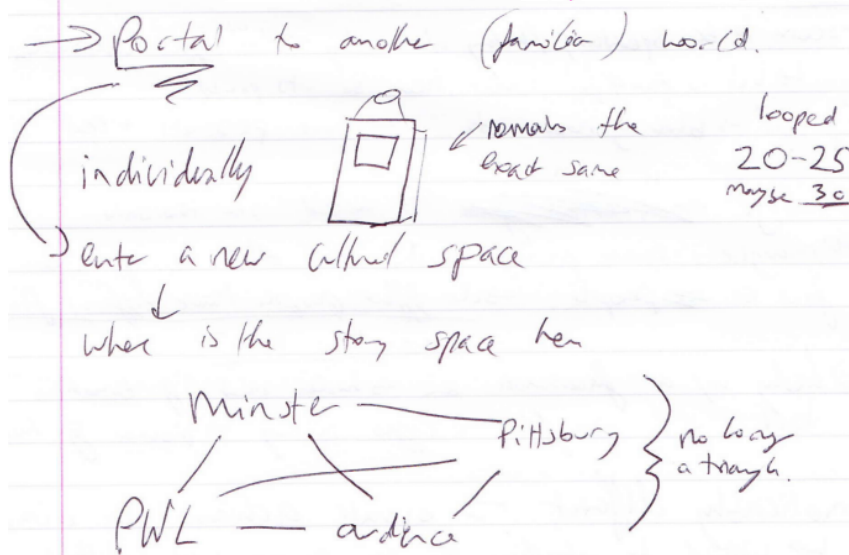 → Portal to another (familiar) world.
individually
remains the
exact same
looped
20-25
maybe 30
enter a new cultural space
where is the story space here
Minster
Pittsburg
PWL
audience
no longer
a triangle.